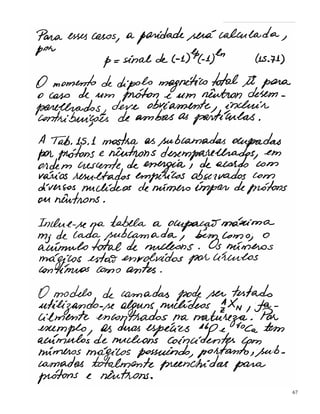 Para esses casos, a paridade será calculada,
por
p = sinal de (-1)^lp (-1)^ln (15.71)
O momento de dipolo magnético total μ para
o caso de um próton e um nêutron desem-
parelhados, deve obviamente, incluir
contribuições de ambas as partículas.
A Tab. 15.1 mostra as subcamadas ocupadas
por prótons e nêutrons desemparelhados, em
ordem crescente de energia, de acordo com
vários resultados empíricos observados com
diversos nuclídeos de número ímpar de prótons
ou nêutrons.
Inclue-se na tabela a ocupação máxima
mj de cada subcamada, bem como, o
acúmulo total de nucleons. Os números
mágicos estão envolvidos por círculos
contínuos como antes.
O modelo de camadas pode ser testado
utilizando-se alguns nuclídeos A Z X N, fa-
cilmente encontrados na natureza. Por
exemplo, as duas espécies 16O e 40Ca tem
acúmulos de nucleons coincidentes com
números mágicos possuindo, portanto, sub-
camadas totalmente preenchidas para
prótons e nêutrons.
67